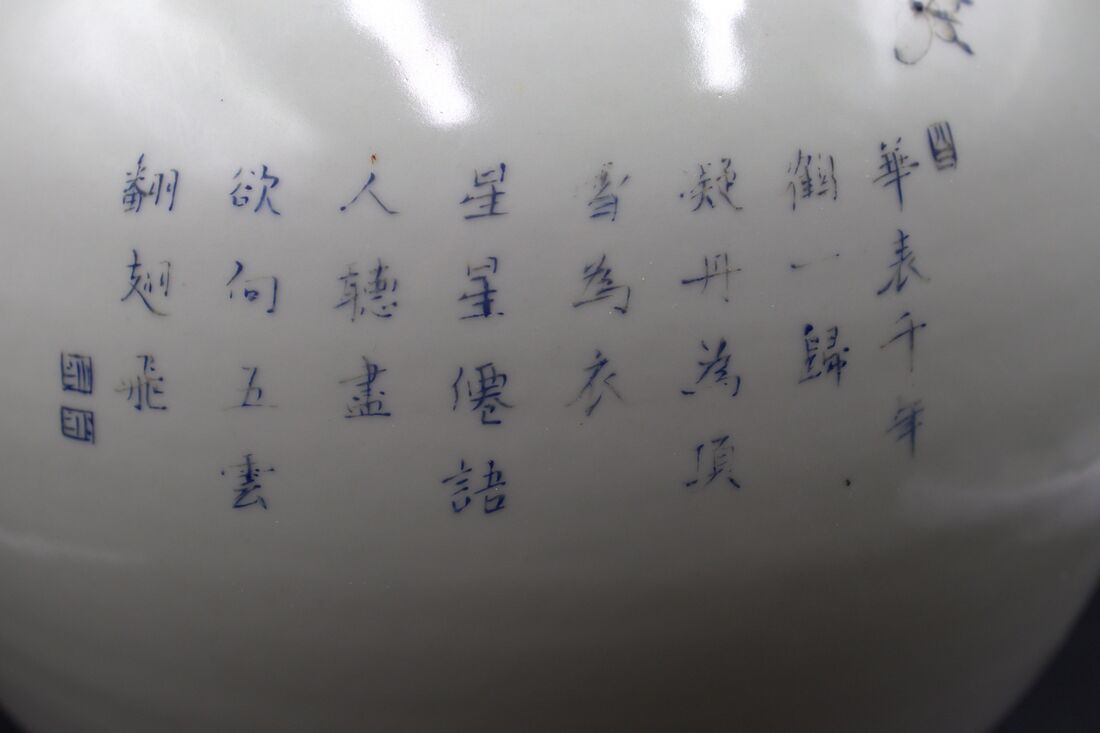 華表千年
鶴一歸
凝丹為頂
雪為衣
星星僊語
人聽盡
欲向五雲
翻翅飛